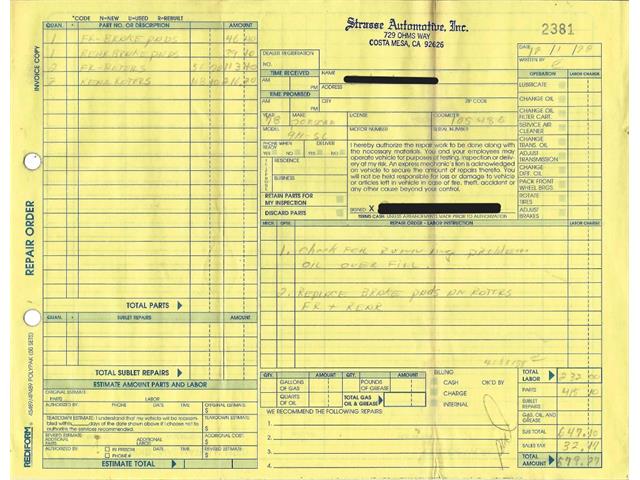 *CODE N=NEW U=USED R=REBUILT
QUAN. * PART NO. OR DESCRIPTION AMOUNT
1 FR-BRAKE PADS 46.20
1 REAR BRAKE PADS 39.10
2 FR-ROTERS
2 REAR ROTERS
TOTAL PARTS
QUAN. * SUBLET REPAIRS AMOUNT
TOTAL SUBLET REPAIRS
ESTIMATE AMOUNTS PARTS AND LABOR
ORIGINAL ESTIMATE:
PARTS LABOR
AUTHORIZED BY PHONE DATE TIME ORIGINAL ESTIMATE
$
TEARDOWN ESTIMATE: I understand that my vehicle will be reassem-
bled within days of the date shown above if I choose not to
authorize the services recommended.
TEARDOWN ESTIMATE
$
REVISED ESTIMATE
ADDITIONAL PARTS ADDITIONAL LABOR
ADDITIONAL COST
$
AUTHORIZED BY IN PERSON PHONE # DATE TIME REVISED ESTIMATE
$
ESTIMATE TOTAL
INVOICE COPY
REPAIR ORDER
REDIFORM
4S489/4P489 POLYPAK (50 SETS)
Strasse Automotive, Inc.
729 OHMS WAY
COSTA MESA, CA 92626
2381
DEALER REGISTRATION
NO.
DATE
WRITTEN BY
TIME RECEIVED
AM PM
TIME PROMISED
AM PM
NAME
ADDRESS
CITY ZIP CODE
YEAR MAKE LICENSE ODOMETER
78 PORSCHE 105486
MODEL MOTOR NUMBER SERIAL NUMBER
911-SC
PHONE WHEN READY DELIVER
YES NO YES NO
RESIDENCE
BUSINESS
RETAIN PARTS FOR
MY INSPECTION
DISCARD PARTS
I hereby authorize the repair work to be done along with
the necessary materials. You and your employees may
operate vehicle for purposes of testing, inspection or delivery
at my risk. An express mechanic's lien is acknowledged
on vehicle to secure the amount of repairs thereto. You
will not be held responsible for loss or damage to vehicle
or articles left in vehicle in case of fire, theft, accident or
any other cause beyond your control.
SIGNED X
TERMS CASH UNLESS ARRANGEMENTS MADE PRIOR TO AUTHORIZATION
OPERATION LABOR CHARGE
LUBRICATE
CHANGE OIL
CHANGE OIL
FILTER CART.
SERVICE AIR
CLEANER
CHANGE
TRANS. OIL
ADJUST
TRANSMISSION
CHANGE
DIFF. OIL
PACK FRONT
WHEEL BRGS.
ROTATE
TIRES
ADJUST
BRAKES
MECH. OPR. REPAIR ORDER - LABOR INSTRUCTION LABOR CHARGE
1. Check FOR Running problem
OIL OVER FILL.
2. REPLACE BRAKE PADS AN ROTERS
FR + REAR
QTY. AMOUNT QTY. AMOUNT
GALLONS OF GAS
POUNDS OF GREASE
QUARTS OF OIL
TOTAL GAS OIL & GREASE
BILLING
CASH OK'D BY
CHARGE
INTERNAL
WE RECOMMEND THE FOLLOWING REPAIRS:
1.
2.
3.
4.
TOTAL LABOR 232.00
PARTS 415.10
SUBLET REPAIRS
GAS, OIL, AND GREASE
SUB TOTAL 647.10
SALES TAX
TOTAL AMOUNT